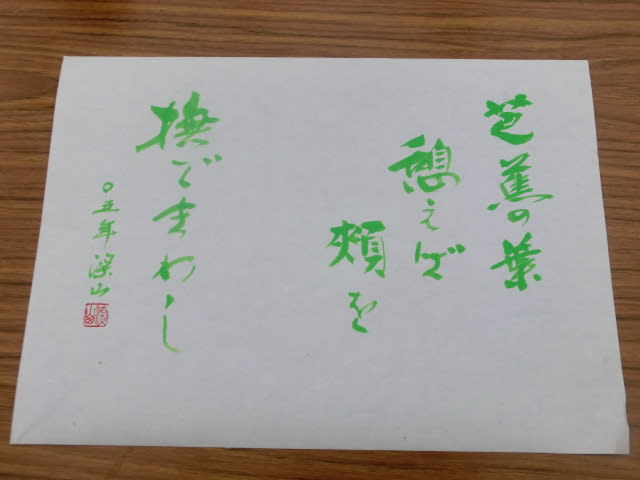 芭蕉の葉
憩えば
頬を
撫でまわし
〇五年 深山